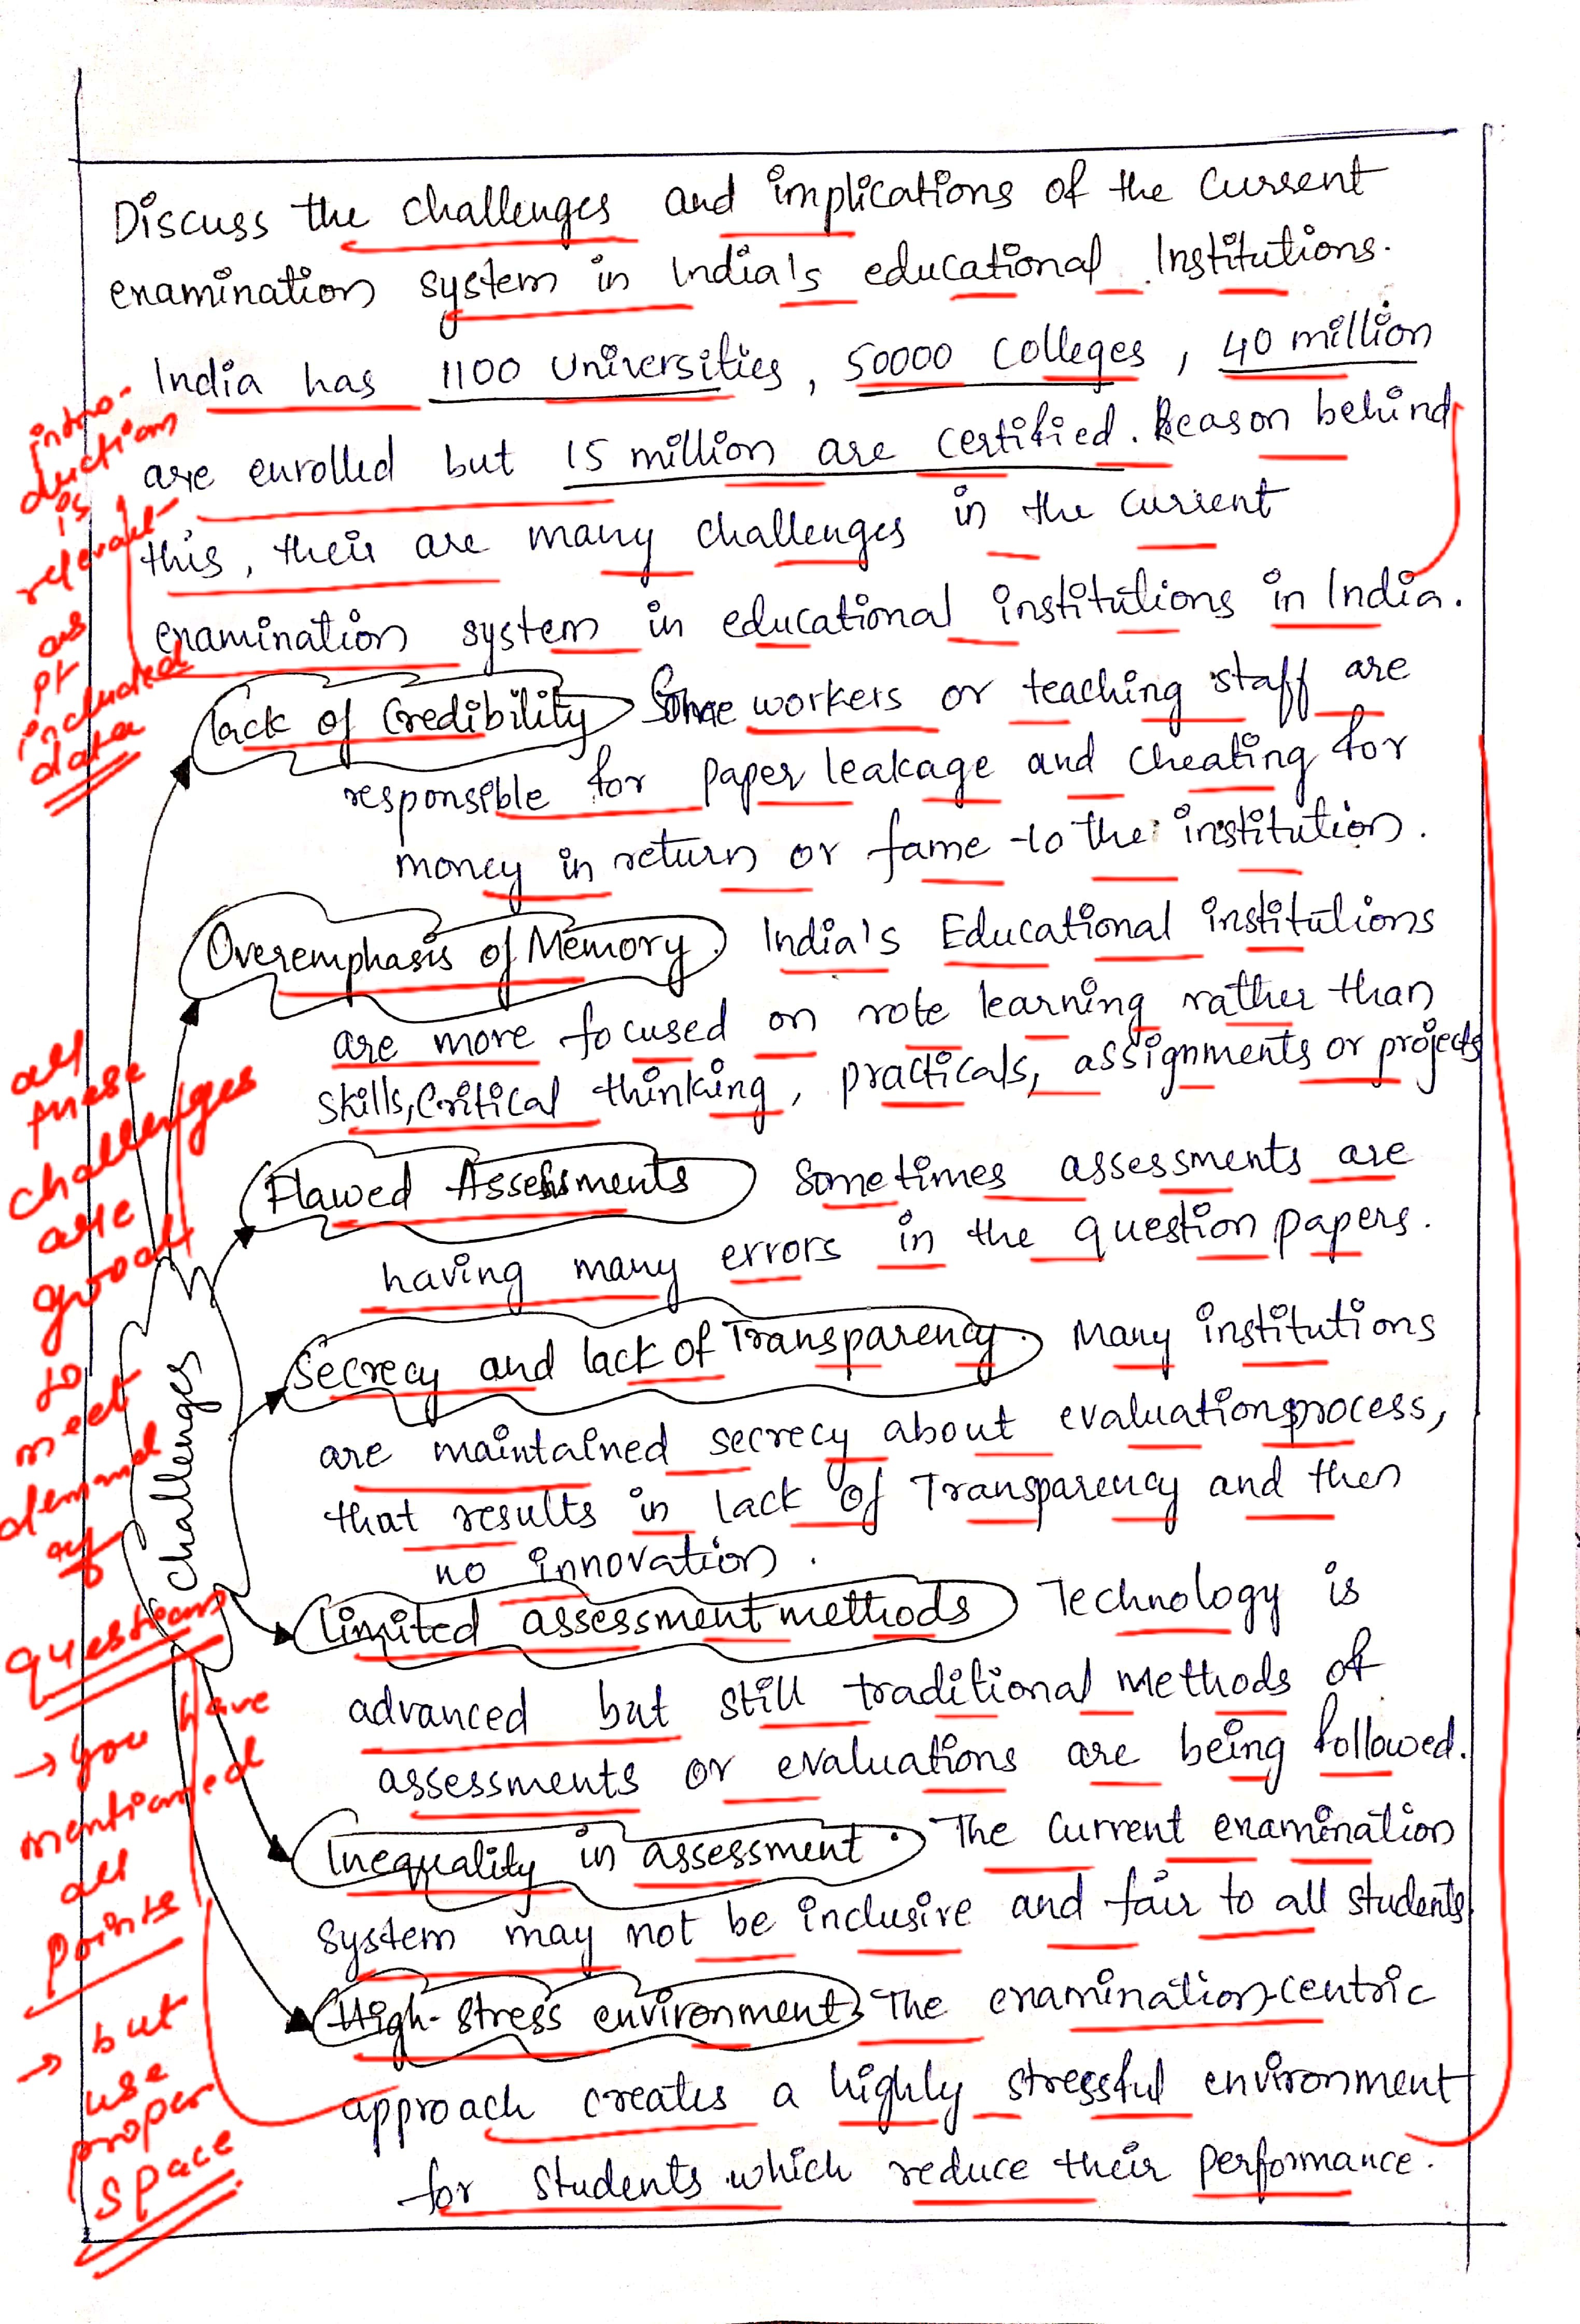 Discuss the challenges and implications of the current
examination system in India's educational Institutions.
India has 1100 Universities, 50000 Colleges, 40 million
are enrolled but 15 million are certified. Reason behind
this, their are many challenges in the current
examination system in educational institutions in India.
intro-
duction
is
relevant
as
pt
included
data
lack of Credibility Some workers or teaching staff are
responsible for paper leakage and cheating for
money in return or fame to the institution.
Overemphasis of Memory. India's Educational institutions
are more focused on rote learning rather than
skills, Critical thinking, practicals, assignments or projects
Flawed Assessments Sometimes assessments are
having many errors in the question papers.
Secrecy and lack of Transparency. Many institutions
are maintained secrecy about evaluation process,
that results in lack of Transparency and then
no innovation.
Limited assessment methods Technology is
advanced but still traditional methods of
assessments or evaluations are being followed.
Inequality in assessment. The current examination
system may not be inclusive and fair to all students.
High-stress environment. The examination-centric
approach creates a highly stressful environment
for students which reduce their performance.
Challenges
all
these
challenges
are
good
to
meet
demand
of
questions
→ you have
mentioned
all
points
→ but
use
proper
space